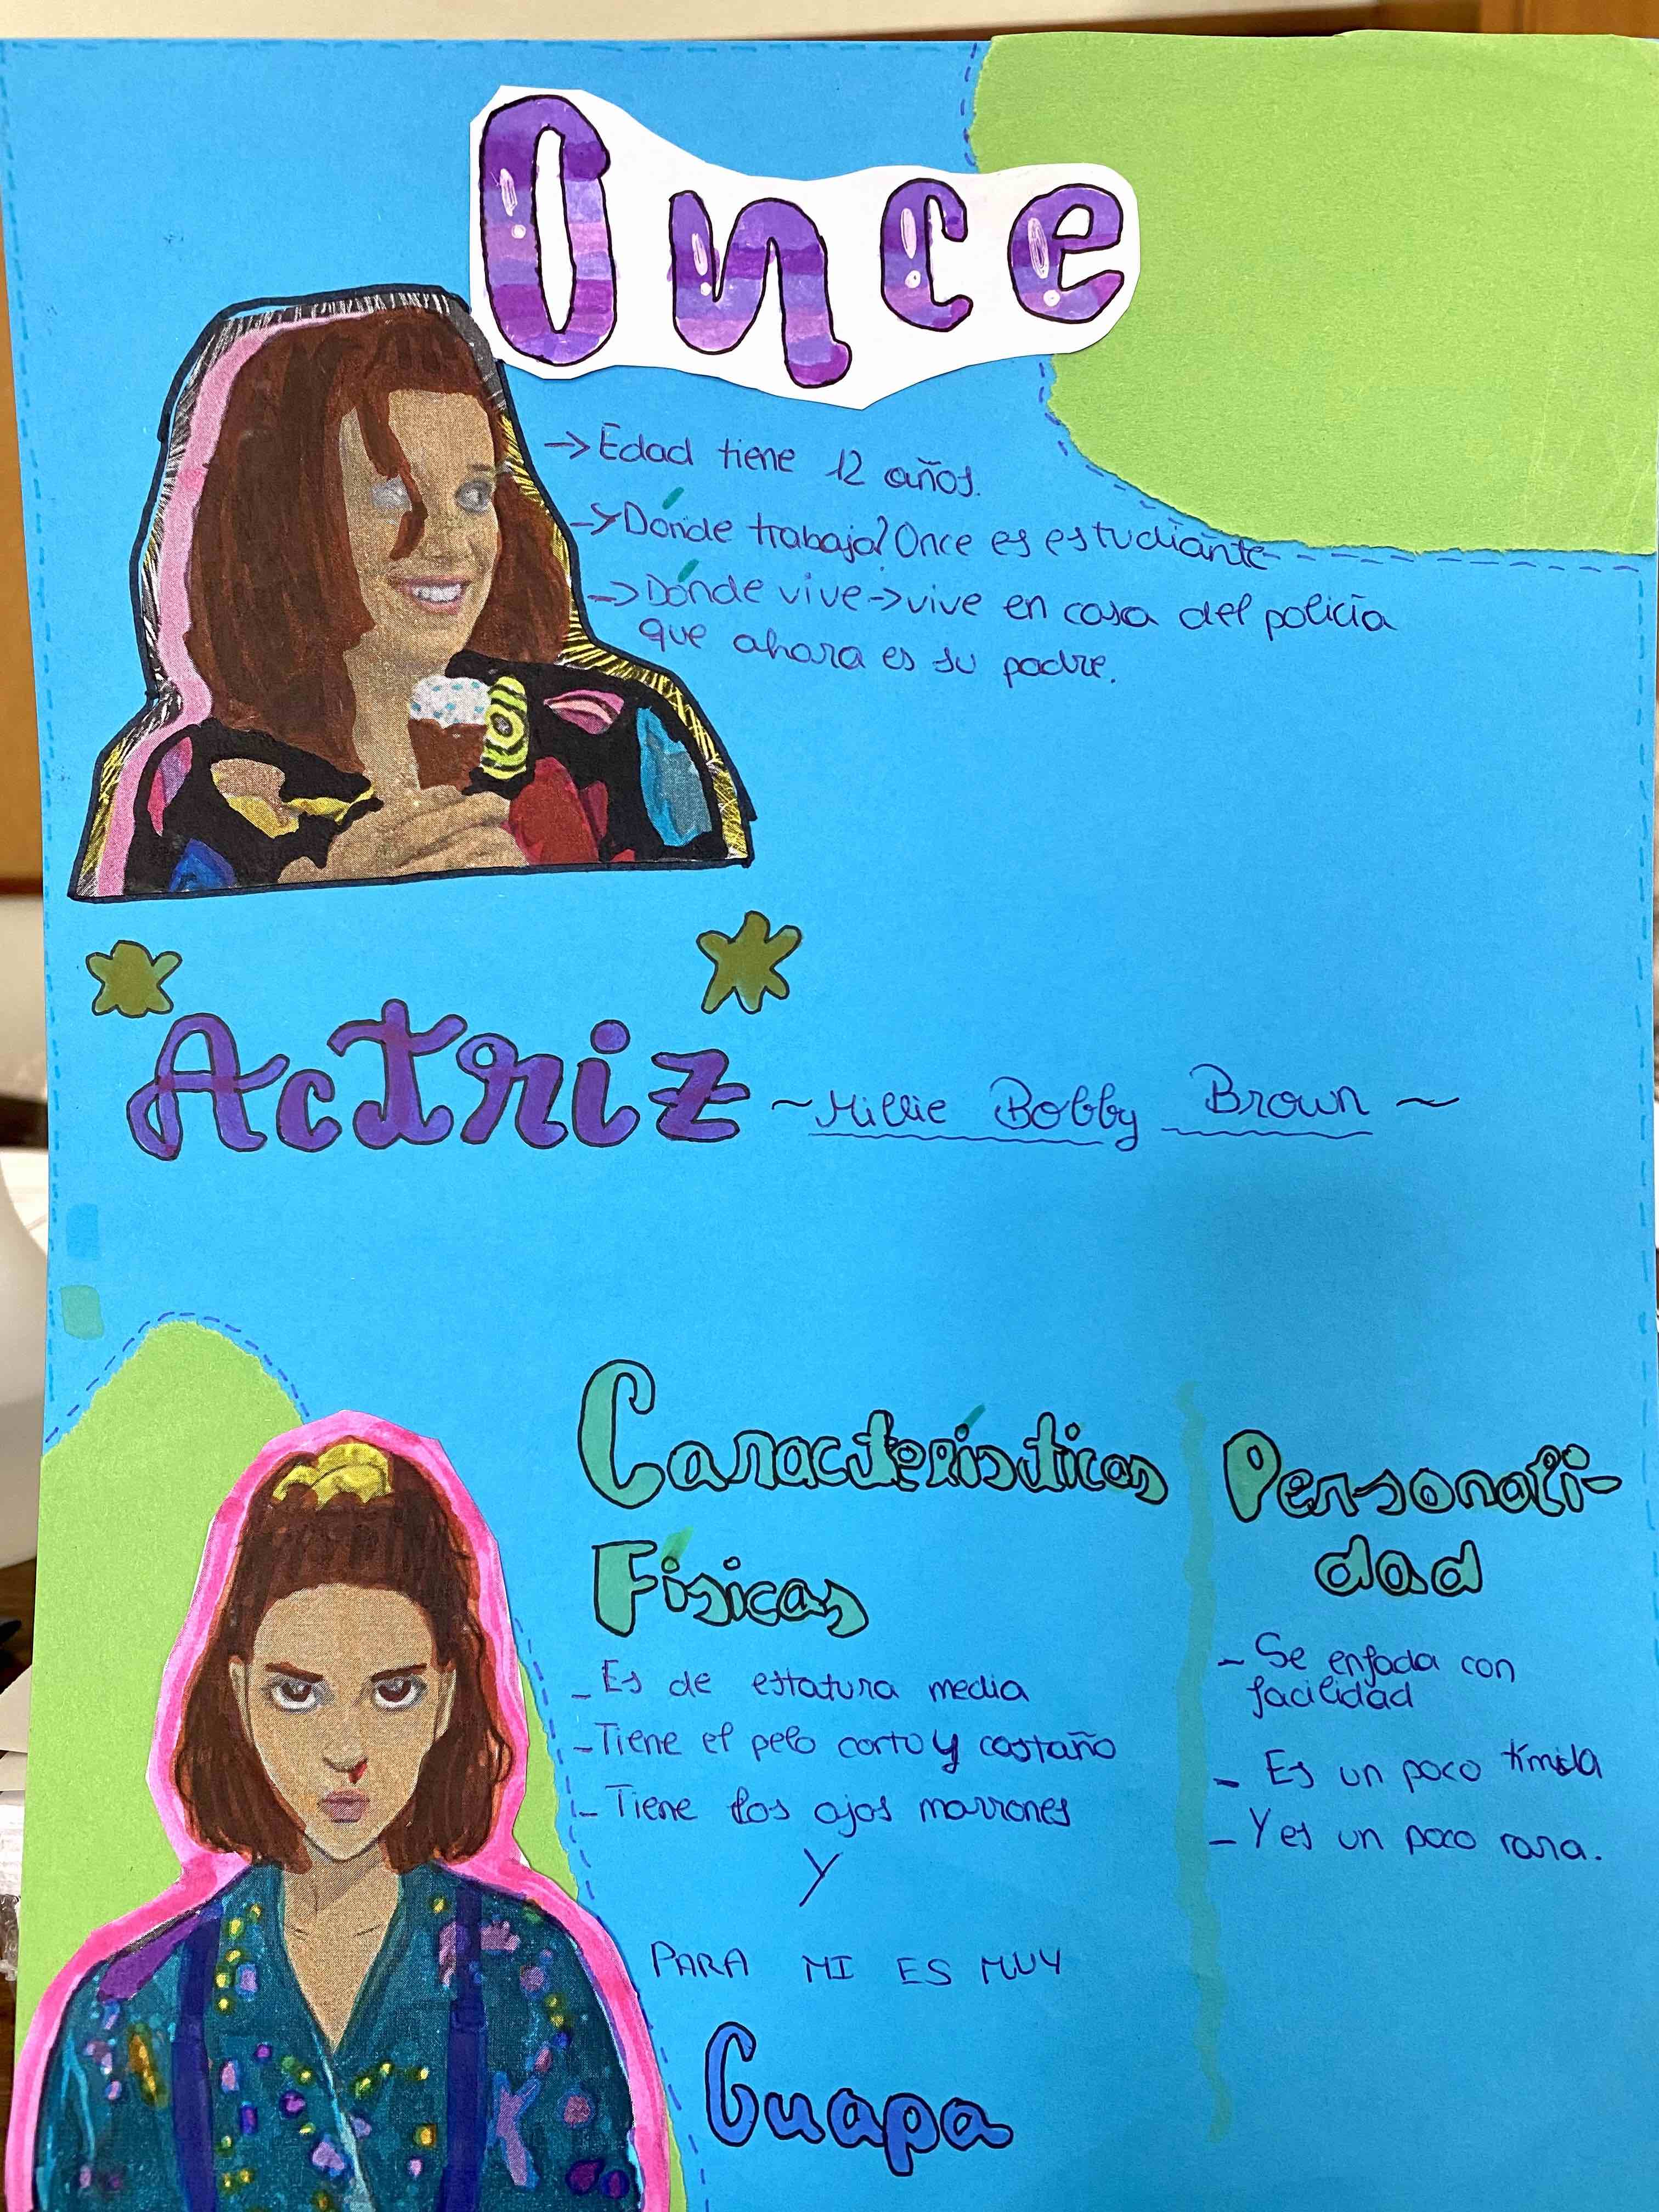 Once
→ Edad tiene 12 años.
→ Dónde trabaja? Once es estudiante
→ Dónde vive → vive en casa del policía
que ahora es su padre.
Actriz ~ Millie Bobby Brown ~
Características
Físicas
- Es de estatura media
- Tiene el pelo corto y castaño
- Tiene los ojos marrones
Y
PARA MI ES MUY
Guapa
Personali-
dad
- Se enfada con
facilidad
- Es un poco tímida
- Y es un poco rara.